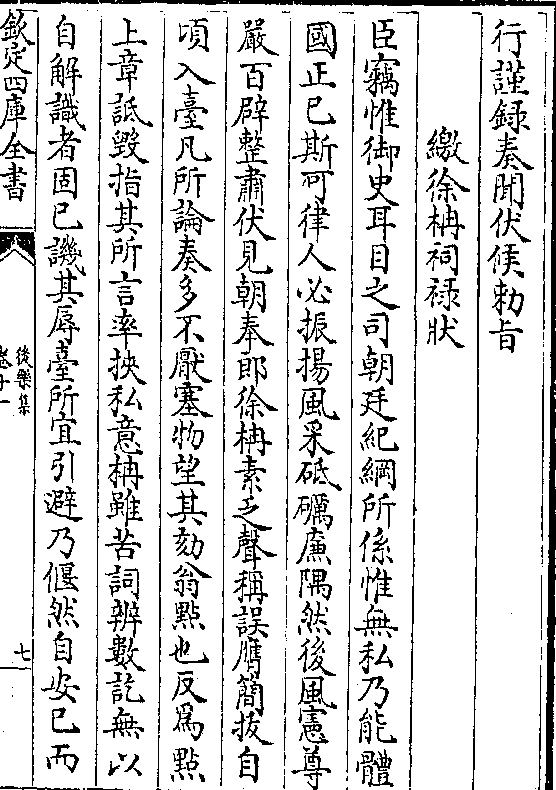 行謹録奏聞伏候勅旨
繳徐柟祠禄狀
臣竊惟御史耳目之司朝廷紀綱所係惟無私乃能體
國正已斯可律人必振揚風采砥礪廉隅然後風憲尊
嚴百辟整肅伏見朝奉郎徐柟素乏聲稱誤膺簡拔自
頃入臺凡所論奏多不厭塞物望其劾翁點也反爲點
上章詆毀指其所言率挾私意柟雖苦詞辨數訖無以
自解識者固已譏其辱臺所宜引避乃偃然自安已而
欽定四庫全書
後樂集
卷十一
七